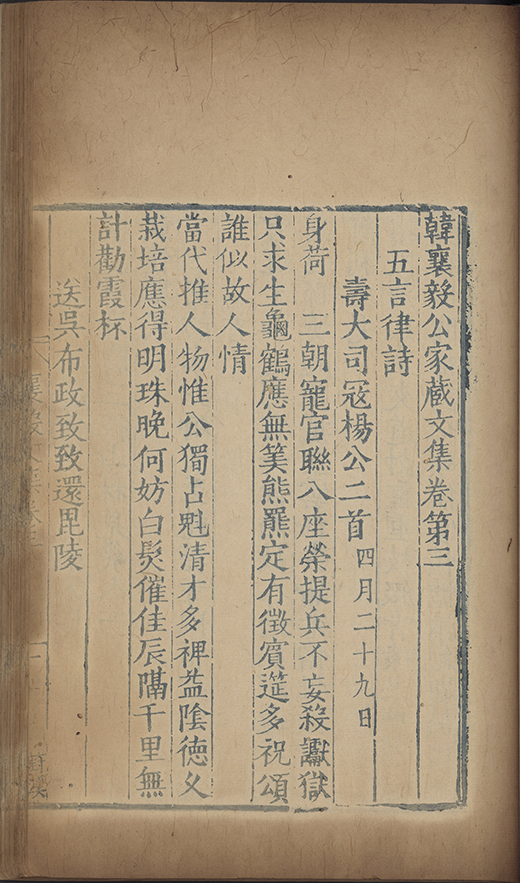 韓襄毅公家蔵文集卷第三
五言律詩
壽大司冦楊公二首 四月二十九日
身荷 三朝寵官聯八座榮提兵不妄殺讞獄
只求生龜鶴應無筭熊羆定有徵賓筵多祝頌
誰似故人情
當代推人物惟公獨占魁清才多裨益陰德乂
栽培應得明珠晚何妨白髮催佳辰隔千里無
計勸霞杯
送吳布政致致還毘陵